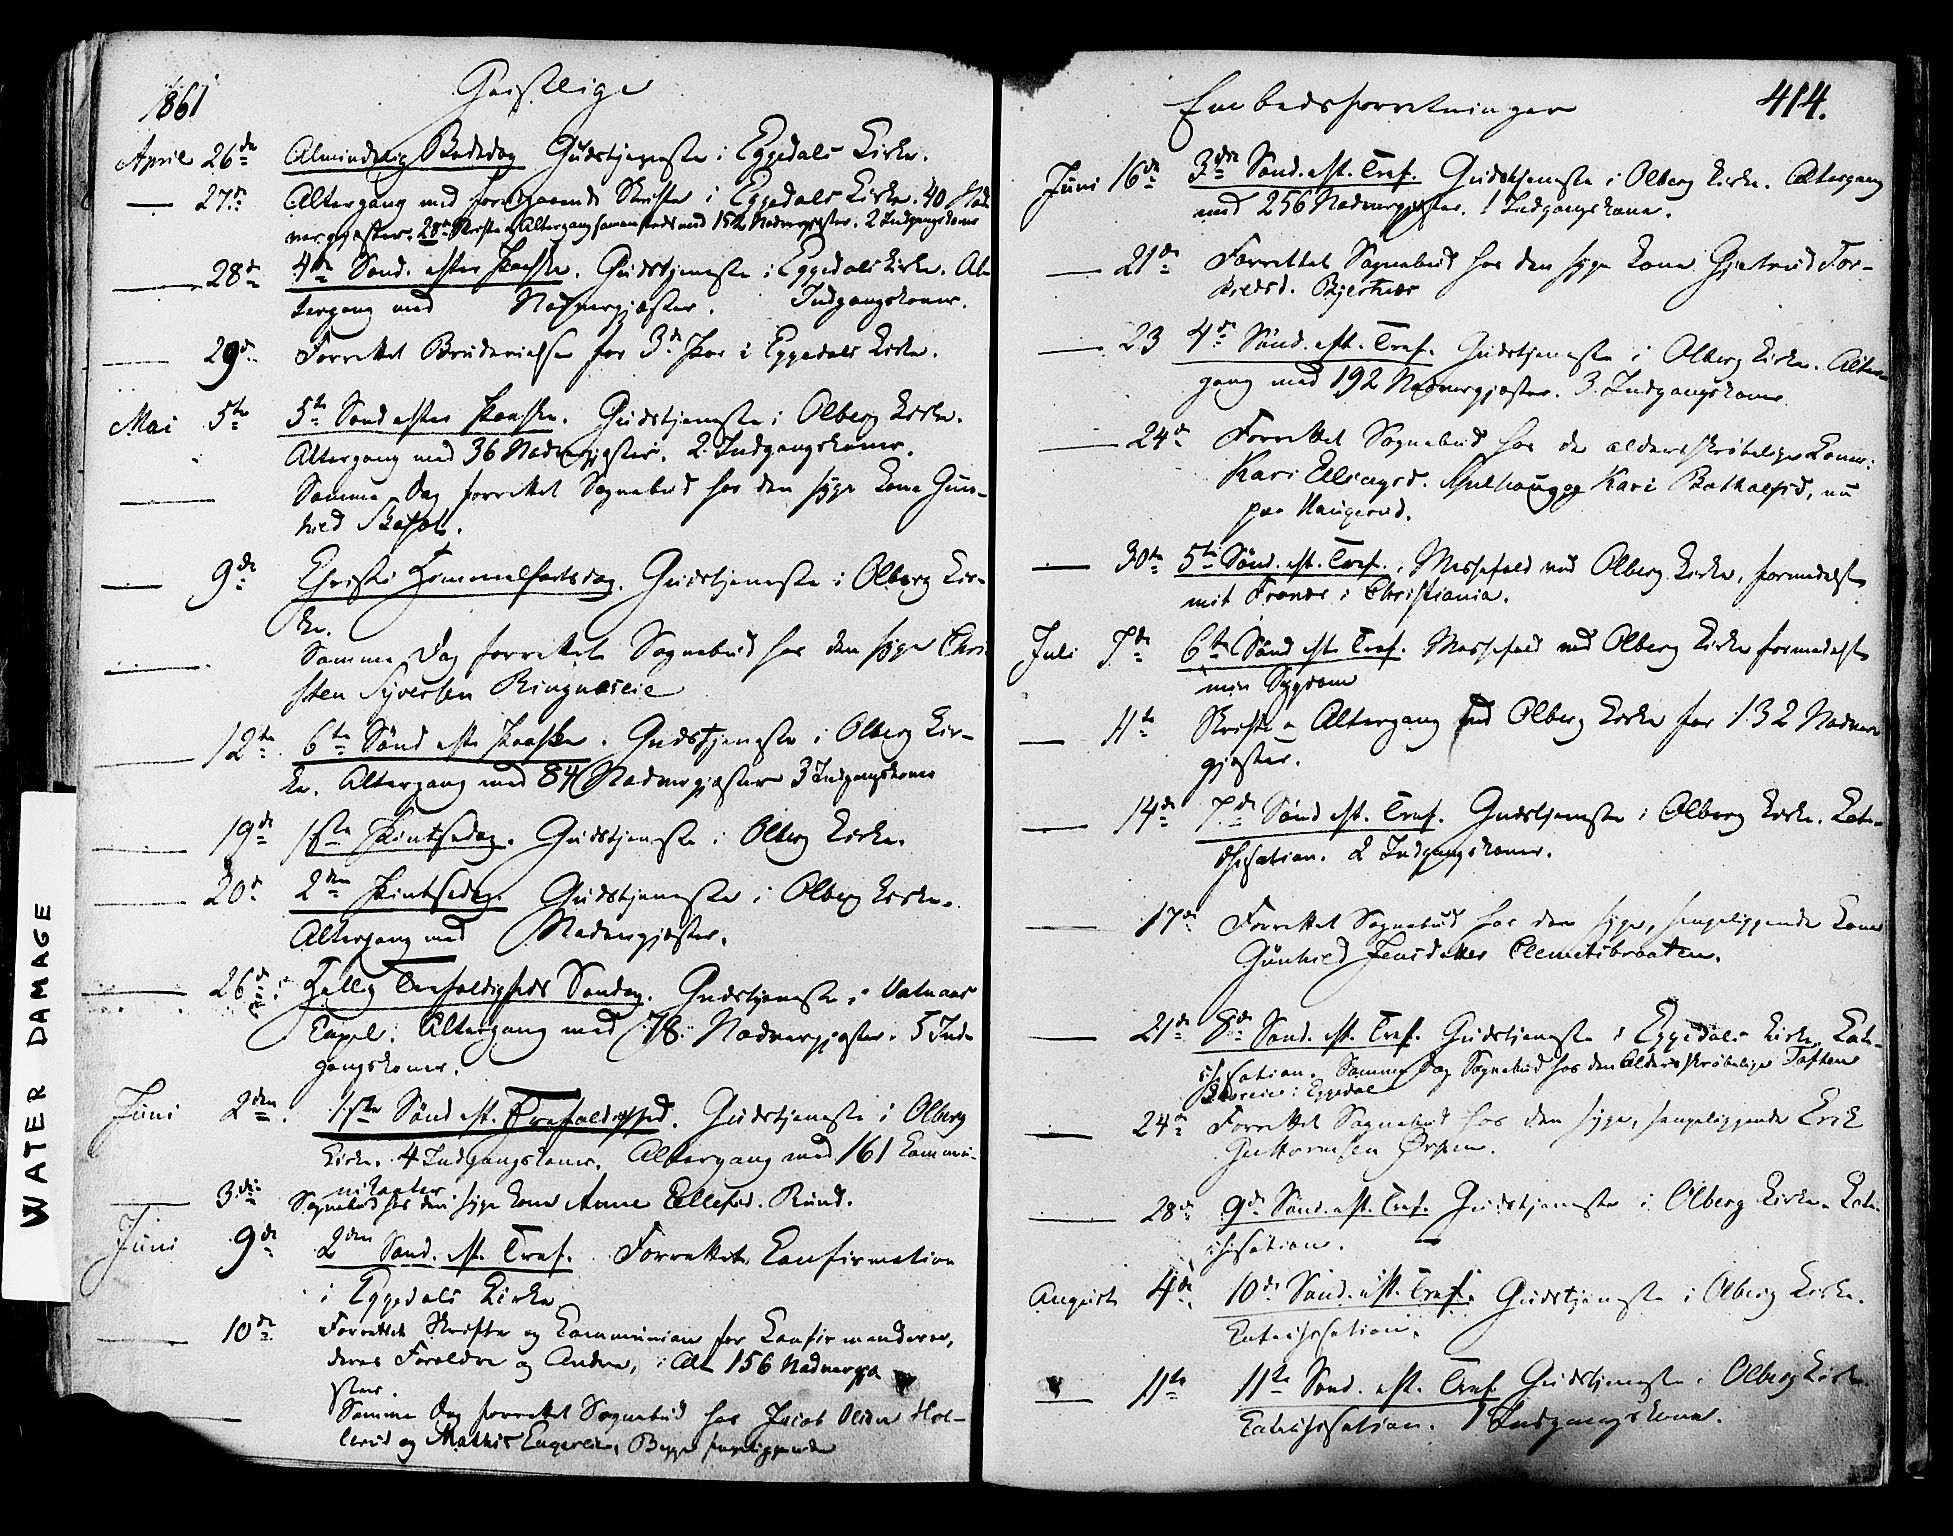 1861 Geistlige
April 26de Almindelig Bededag Gudstjeneste i Eggedals Kirke.
— 27de Altergang med foregaaende Skrifte i Eggedals Kirke. 40 Nad-
vergjæster. 28de Skrifte & Altergang sammesteds med 152 Nadvergjæster. 2 Indgangskoner
— 28de 4de Sønd. efter Paaske. Gudstjeneste i Eggedals Kirke. Al-
tergang med Nadvergjæster. Indgangskoner.
— 29de Forrettet Brudevielse for 3de Par i Eggedals Kirke.
Mai 5te 5te Sønd efter Paaske. Gudstjeneste i Olberg Kirke.
Altergang med 36 Nadvergjæster. 2 Indgangskoner.
— Samme Dag forrettet Sognebud hos den syge Kone Gun-
hild
— 9de Christi Himmelfartsdag. Gudstjeneste i Olberg Kir-
ke.
— Samme Dag forrettet Sognebud hos den syge Chri-
sten Syversen Ringneseie
— 12te 6te Sønd eft. Paaske. Gudstjeneste i Olberg Kir-
ke. Altergang med 84 Nadvergjæster 3 Indgangskoner
— 19de 1ste Pintsedag. Gudstjeneste i Olberg Kirke.
— 20de 2den Pintsedag. Gudstjeneste i Olberg Kirke.
Altergang med Nadvergjæster.
— 26de Hellig Trefoldigheds Søndag. Gudstjeneste i Vatnaas
Capel. Altergang med 78 Nadvergjæster. 5 Ind-
gangskoner.
Juni 2den 1ste Sønd eft. Trefoldighed. Gudstjeneste i Olberg
Kirke. 4 Indgangskoner. Altergang med 161 Commu-
nikanter
— 3die Sognebud hos den syge Kone Anne Ellefsd. Rund.
Juni 9de 2den Sønd. eft. Tref. Forrettet Confirmation
i Eggedals Kirke
— 10de Forrettet Skrifte og Communion for Confirmanderne,
deres Foreldre og Andre, i Alt 156 Nadvergjæ-
ster.
— Samme Dag forrettet Sognebud hos Jacob Olsen Hol-
lerud og Mathis Engereie, Begge sengeliggende
Embedsforretninger 414.
Juni 16de 3die Sønd. eft. Tref. Gudstjeneste i Olberg Kirke. Altergang
med 256 Nadvergjæster. 1 Indgangskone.
— 21de Forrettet Sognebud hos den syge Kone Gjertrud Tor-
kildsd. Bjertnes
— 23 4de Sønd. eft. Tref. Gudstjeneste i Olberg Kirke. Alter-
gang med 192 Nadvergjæster. 3 Indgangskoner
— 24de Forrettet Sognebud hos de aldersskrøbelige Koner:
Kari Ellingsd. og Kari Bothalfsd, nu
paa Haugerud.
— 30te 5te Sønd. eft. Tref. Messefald ved Olberg Kirke, formedelst
mit Fravær i Christiania.
Juli 7de 6te Sønd eft. Tref. Messefald ved Olberg Kirke formedelst
min Sygdom
— 11te Skrifte & Altergang ved Olberg Kirke for 132 Nadver-
gjæster.
— 14de 7de Sønd eft. Tref. Gudstjeneste i Olberg Kirke. Kate-
chisation. 2 Indgangskoner.
— 17de Forrettet Sognebud hos den syge, sengeliggende Kone
Gunhild Jensdatter Clemetsbraaten.
— 21de 8de Sønd. eft. Tref. Gudstjeneste i Eggedals Kirke. Kate-
chisation. Samme Dag Sognebud hos den aldersskrøbelige
i Eggedal
— 24de Forrettet Sognebud hos den syge, sengeliggende Erik
Guttormsen Ørpen.
— 28de 9de Sønd. eft. Tref. Gudstjeneste i Olberg Kirke. Kate-
chisation.
August 4de 10de Sønd. eft. Tref. Gudstjeneste i Olberg Kirke.
Catechisation.
— 11te 11te Sønd. eft. Tref. Gudstjeneste i Olberg Kirke
Catechisation. 1 Indgangskone.
WATER DAMAGE